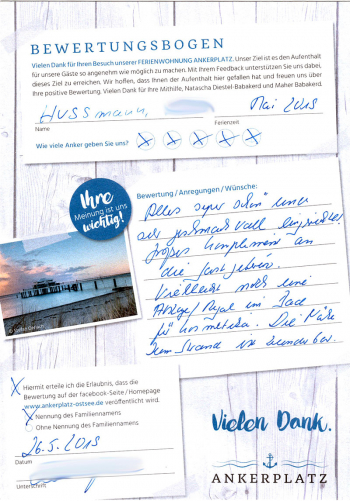 BEWERTUNGSBOGEN
Vielen Dank für Ihren Besuch unserer FERIENWOHNUNG ANKERPLATZ. Unser Ziel ist es den Aufenthalt
für unsere Gäste so angenehm wie möglich zu machen. Mit Ihrem Feedback unterstützen Sie uns dabei,
dieses Ziel zu erreichen. Wir hoffen, dass Ihnen der Aufenthalt hier gefallen hat und freuen uns über
Ihre positive Bewertung. Vielen Dank für Ihre Mithilfe, Natascha Diestel-Babakerd und Maher Babakerd.
Hussmann, Mai 2018
Name Ferienzeit
Wie viele Anker geben Sie uns?
Ihre
Meinung ist uns
wichtig!
Bewertung / Anregungen / Wünsche:
Alles super schön
sehr geschmackvoll eingerichtet
großes Kompliment an
die Gastgeber.
Vielleicht noch eine
Ablage/Regal im Bad
für Kosmetika. Die Nähe
zum Strand ist wunderbar.
Hiermit erteile ich die Erlaubnis, dass die
Bewertung auf der facebook-Seite / Homepage
www.ankerplatz-ostsee.de veröffentlicht wird.
Nennung des Familiennamens
Ohne Nennung des Familiennamens
26.5.2018
Datum
Unterschrift
Vielen Dank.
ANKERPLATZ